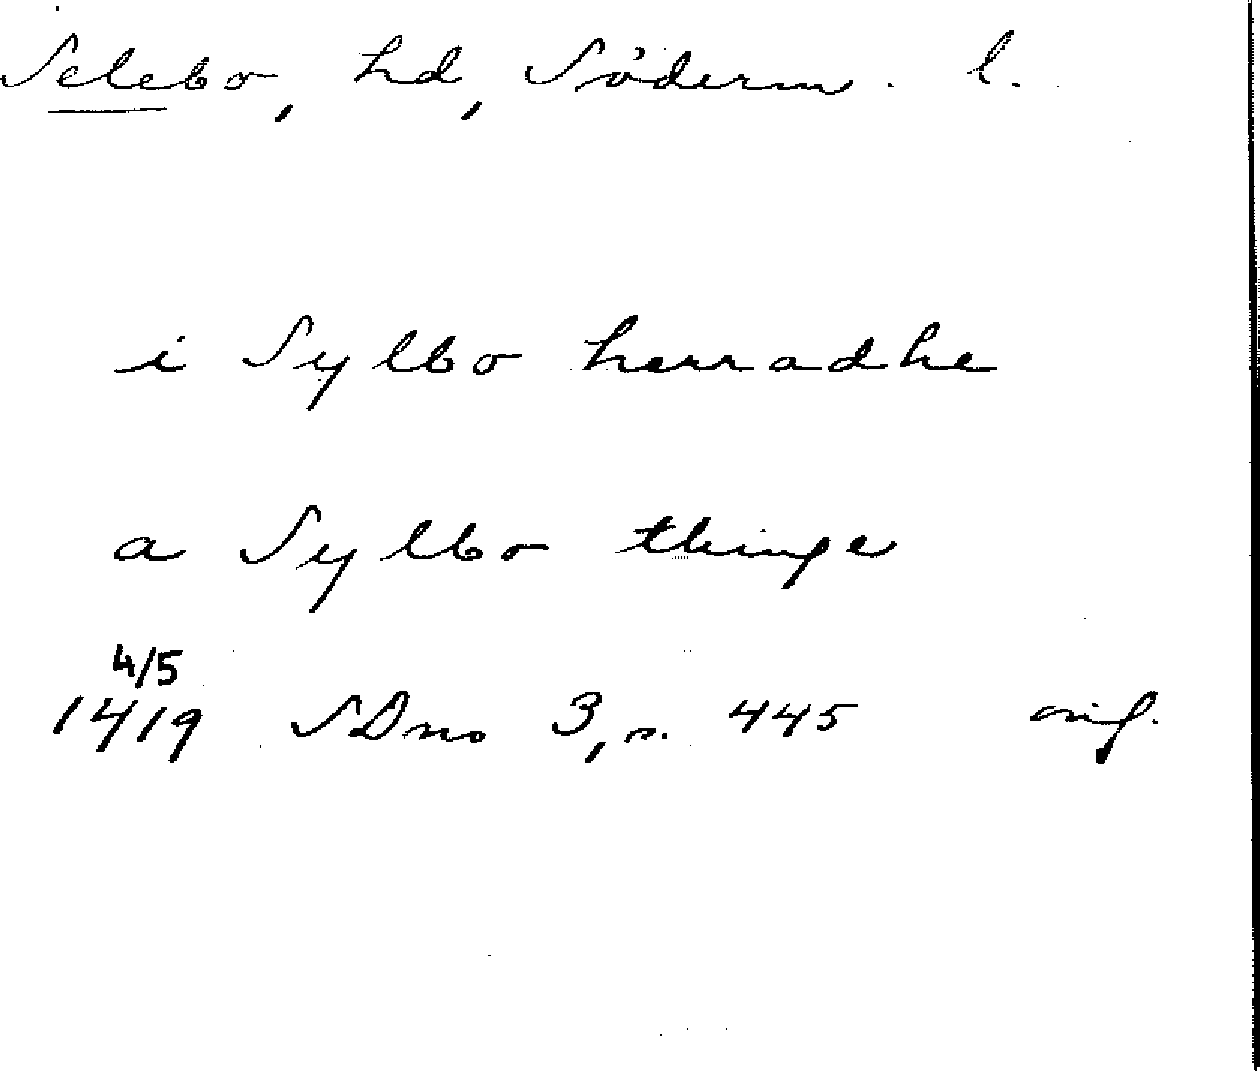 Selebo, hd, Söderm. l.
i Sylbo herradhe
a Sylbo thinge
4/5
1419 SDns 3, s. 445 orig.